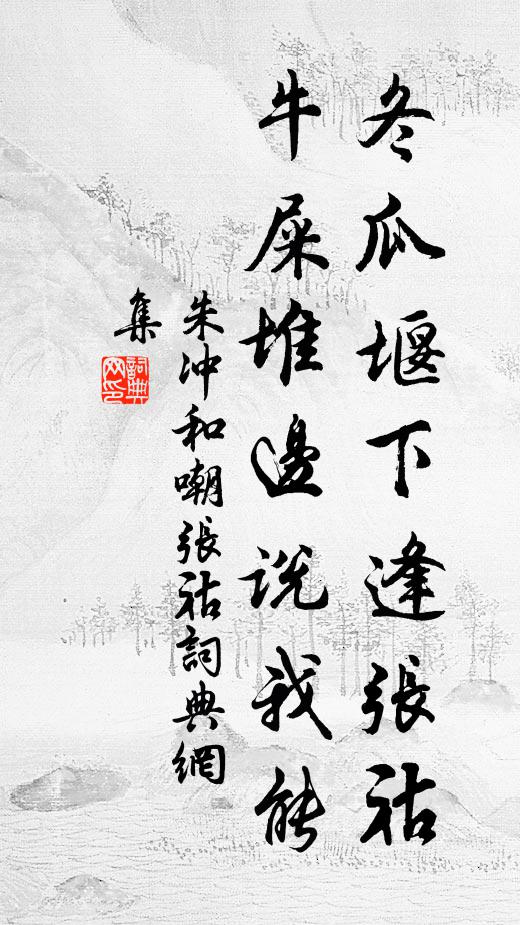 冬瓜堰下逢張祜
牛屎堆邊說我能
朱冲和嘲張祜詞典網
集
詞典網印